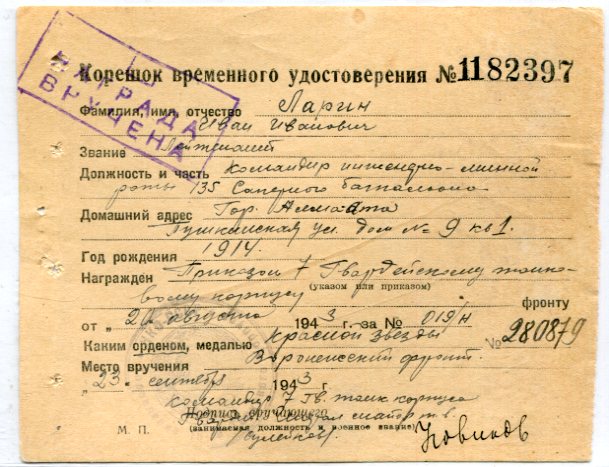 НАГРАДА
ВРУЧЕНА
Корешок временного удостоверения №1182397
Фамилия, имя, отчество Ларин
Иван Иванович
Звание лейтенант
Должность и часть командир инженерно-минной
роты 135 Саперного батальона
Домашний адрес Гор. Алмаата
Пушкинская ул. дом № 9 кв 1.
Год рождения 1914.
Награжден Приказом 7 Гвардейскому танко-
вому корпусу
(указом или приказом)
фронту
от „20 августа 1943 г. за № 019/н
Каким орденом, медалью Красной звезды № 280879
Место вручения Воронежский фронт.
„23" сентября 1943 г.
командир 7 Гв. танк корпуса
Подпись вручающего
Гвардии майор т.в.
(занимаемая должность и военное звание)
М. П.
Новиков